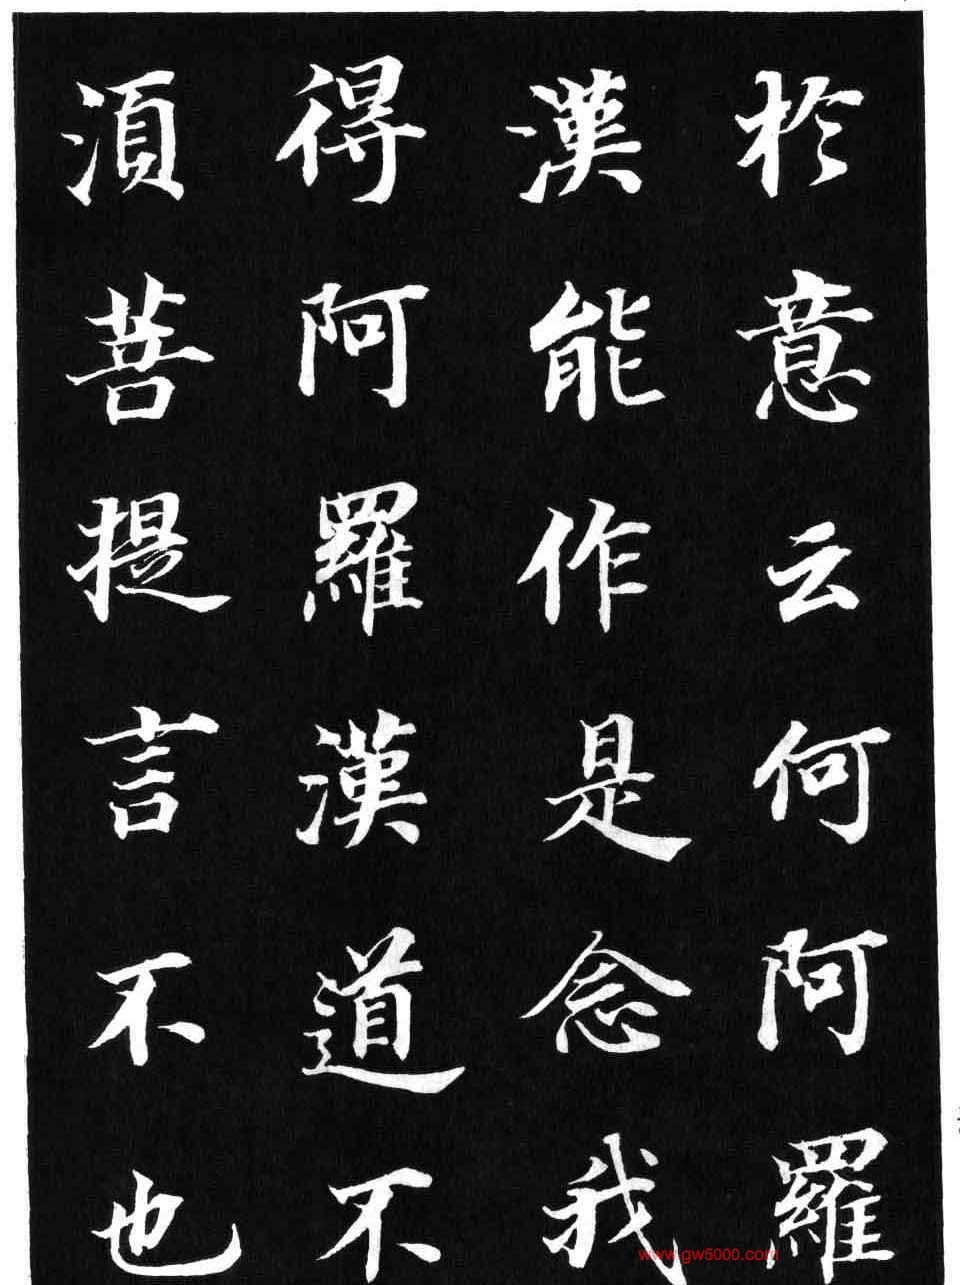 於意云何阿羅
漢能作是念我
得阿羅漢道不
湏菩提言不也
www.gw5000.com